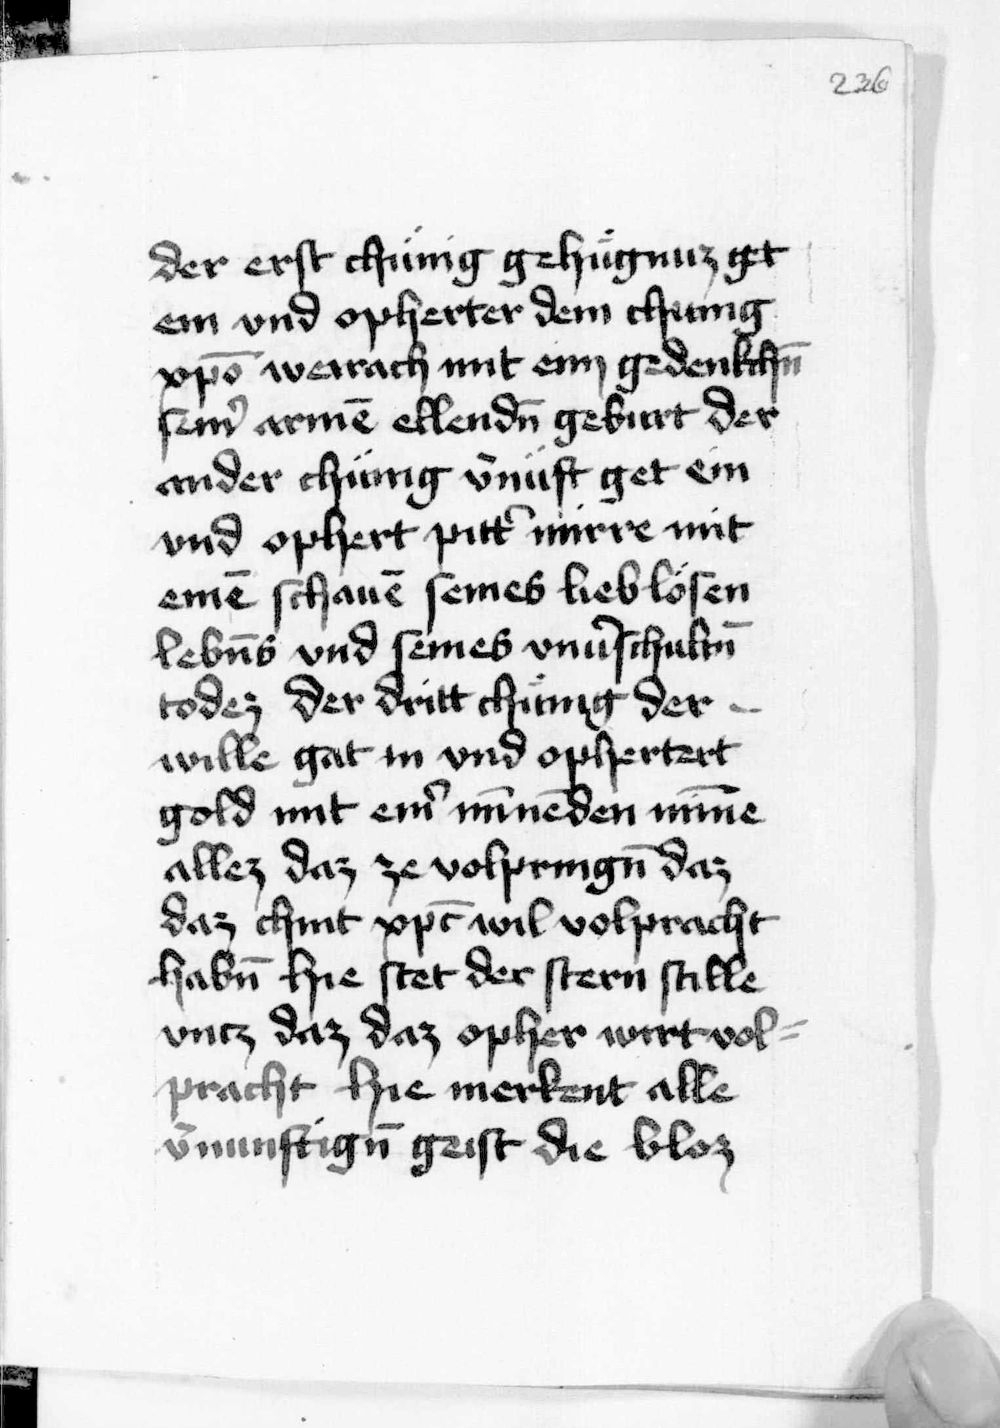 236
der erst chünig gehügnuz get
ein vnd opherter dem chunig
xp̄o weirach mit einz gedenkchn̄
sein᷑ armē ellendn̄ geburt der
ander chünig v̄nüft get ein
vnd ophert pitt᷑ mirre mit
einē schauē seines lieblosen
lebn̄s vnd seines vnu᷑schultn̄
todez der dritt chünig der
wille gat in vnd ophertert
gold mit ein᷑ mīnēden mīne
allez daz ze volpringn̄ daz
daz chint xp̄c wil volpracht
habn̄ hie stet der stern stille
vntz daz daz opher wirt vol-
pracht hie merkent alle
v̄nunftign̄ geist die bloz